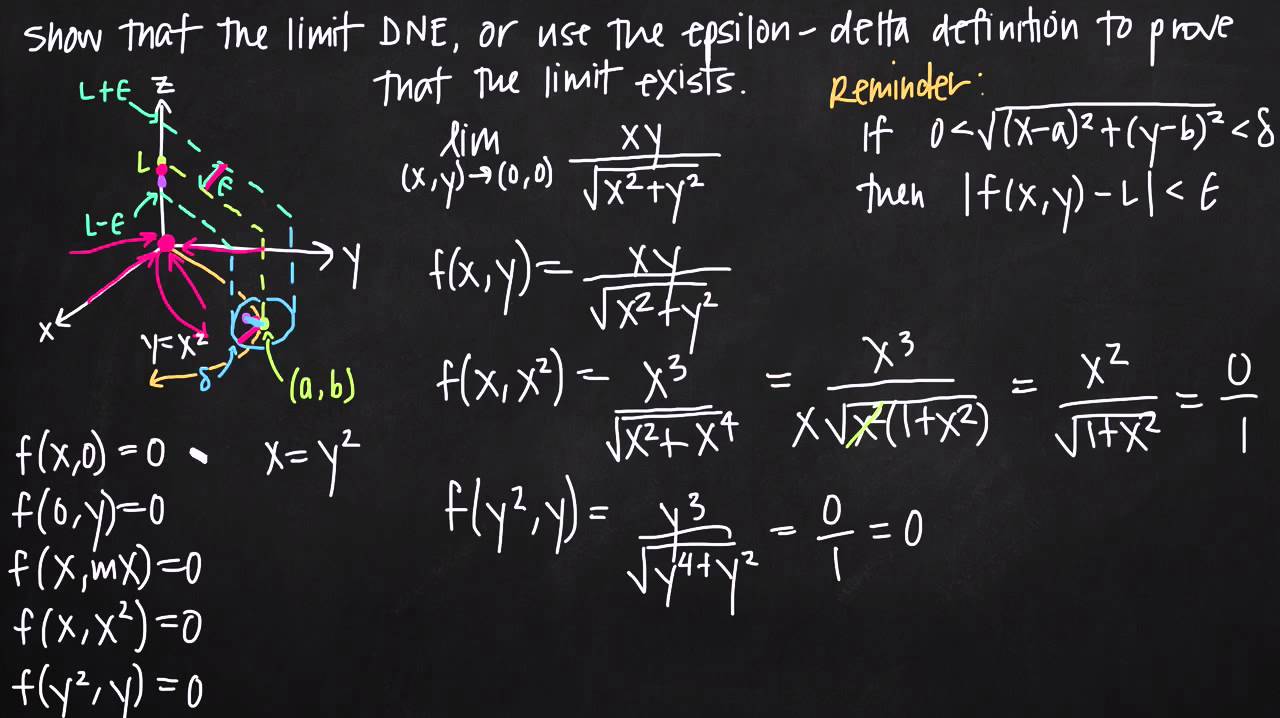 show that the limit DNE, or use the epsilon-delta definition to prove
that the limit exists.
Reminder:
If 0<√(x-a)²+(y-b)² < δ
then |f(x,y)-L| < ε
z
L+ε
L
ε
L-ε
y
x
y=x²
δ
(a,b)
lim (x,y)→(0,0) xy/√x²+y²
f(x,y)= xy/√x²+y²
f(x,x²)= x³/√x²+x⁴ = x³/x√x²(1+x²) = x²/√1+x² = 0/1
f(y²,y)= y³/√y⁴+y² = 0/1 = 0
f(x,0)=0 x=y²
f(0,y)=0
f(x,mx)=0
f(x,x²)=0
f(y²,y)=0